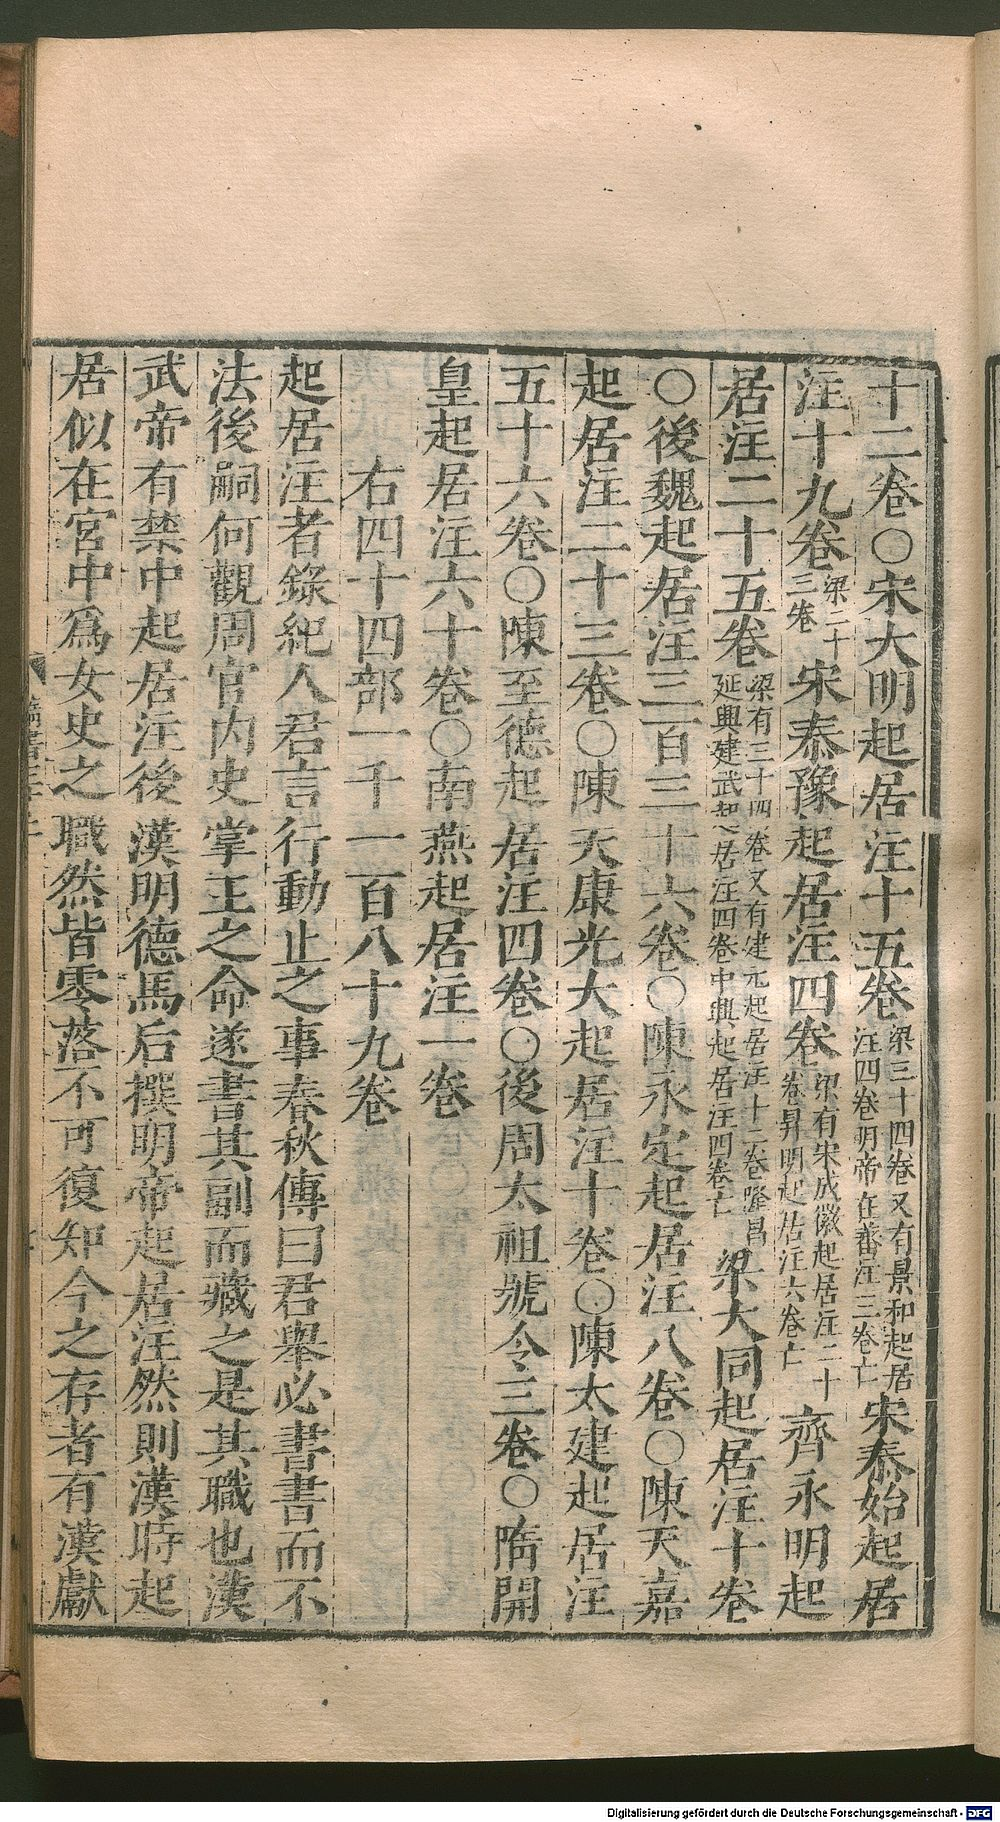 十二卷○宋大明起居注十五卷梁三十四卷又有景和起居注四卷明帝在蕃注三卷亡宋泰始起居
注十九卷梁二十三卷宋泰豫起居注四卷梁有宋成徽起居注二十卷昇明起居注六卷亡齊永明起
居注二十五卷梁有三十四卷又有建元起居注十二卷隆昌延興建武起居注四卷中興起居注四卷亡梁大同起居注十卷
○後魏起居注三百三十六卷○陳永定起居注八卷○陳天嘉
起居注二十三卷○陳天康光大起居注十卷○陳太建起居注
五十六卷○陳至德起居注四卷○後周太祖號令三卷○隋開
皇起居注六十卷○南燕起居注一卷
右四十四部一千一百八十九卷
起居注者錄紀人君言行動止之事春秋傳曰君舉必書書而不
法後嗣何觀周官内史掌王之命遂書其副而藏之是其職也漢
武帝有禁中起居注後漢明德馬后撰明帝起居注然則漢時起
居似在宮中爲女史之職然皆零落不可復知今之存者有漢獻
Digitalisierung gefördert durch die Deutsche Forschungsgemeinschaft - DFG